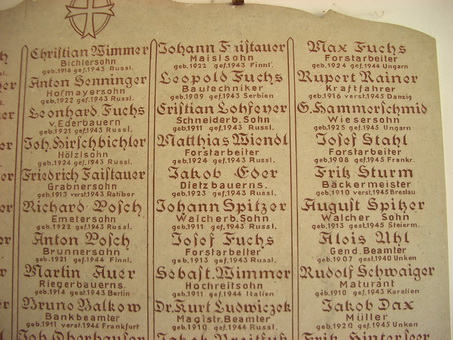 Christian Wimmer
Bichlersohn
geb.1914 gef.1943 Russl.
Anton Senninger
Hofmayersohn
geb.1922 gef.1943 Russl.
Leonhard Fuchs
v.Ederbauern
geb.1921 gef.1943 Russl.
Joh.Hirschbichler
Hölzlsohn
geb.1924 gef.1943 Russl.
Friedrich Faistauer
Grabnersohn
geb.1913 verst.1943 Ratibor
Richard Posch
Emetersohn
geb.1922 gef.1943 Russl.
Anton Posch
Brunnersohn
geb.1921 gef.1944 Finnl.
Martin Auer
Riegerbauerns.
geb.1914 gest.1943 Berlin
Bruno Balkow
Bankbeamter
geb.1911 verst.1944 Frankfurt
Joh.Oberhauser
Johann Faistauer
Maislsohn
geb.1922 gef.1943 Finnl.
Leopold Fuchs
Bautechniker
geb.1909 gef.1943 Serbien
Cristian Lohfeyer
Schneiderb.Sohn
geb.1911 gef.1943 Russl.
Matthias Wiendl
Forstarbeiter
geb.1924 gef.1943 Russl.
Jakob Eder
Dietzbauerns.
geb.1923 gef.1943 Russl.
Johann Spitzer
Walcherb.Sohn
geb.1911 gef.1943 Russl.
Josef Fuchs
Forstarbeiter
geb.1913 gef.1943 Russl.
Sebast.Wimmer
Hochreitsohn
geb.1911 gef.1944 Italien
Dr.Kurt Ludwiczek
Magistr.Beamter
geb.1910 gef.1944 Russl.
Jakob
Max Fuchs
Forstarbeiter
geb.1924 gef.1944 Ungarn
Rupert Rainer
Kraftfahrer
geb.1916 verst.1945 Danzig
G.Hammerschmid
Wiesersohn
geb.1925 gef.1945 Ungarn
Josef Stahl
Forstarbeiter
geb.1908 gef.1945 Frankr.
Fritz Sturm
Bäckermeister
geb.1910 verst.1945 Breslau
August Spitzer
Walcher Sohn
geb.1913 gest.1945 Steierm.
Alois Uhl
Gend.Beamter
geb.1907 gef.1945 Unken
Rudolf Schwaiger
Maturant
geb.1921 gef.1943 Karelien
Jakob Dax
Müller
geb.1920 gef.1945 Unken
Fritz Hinterseer